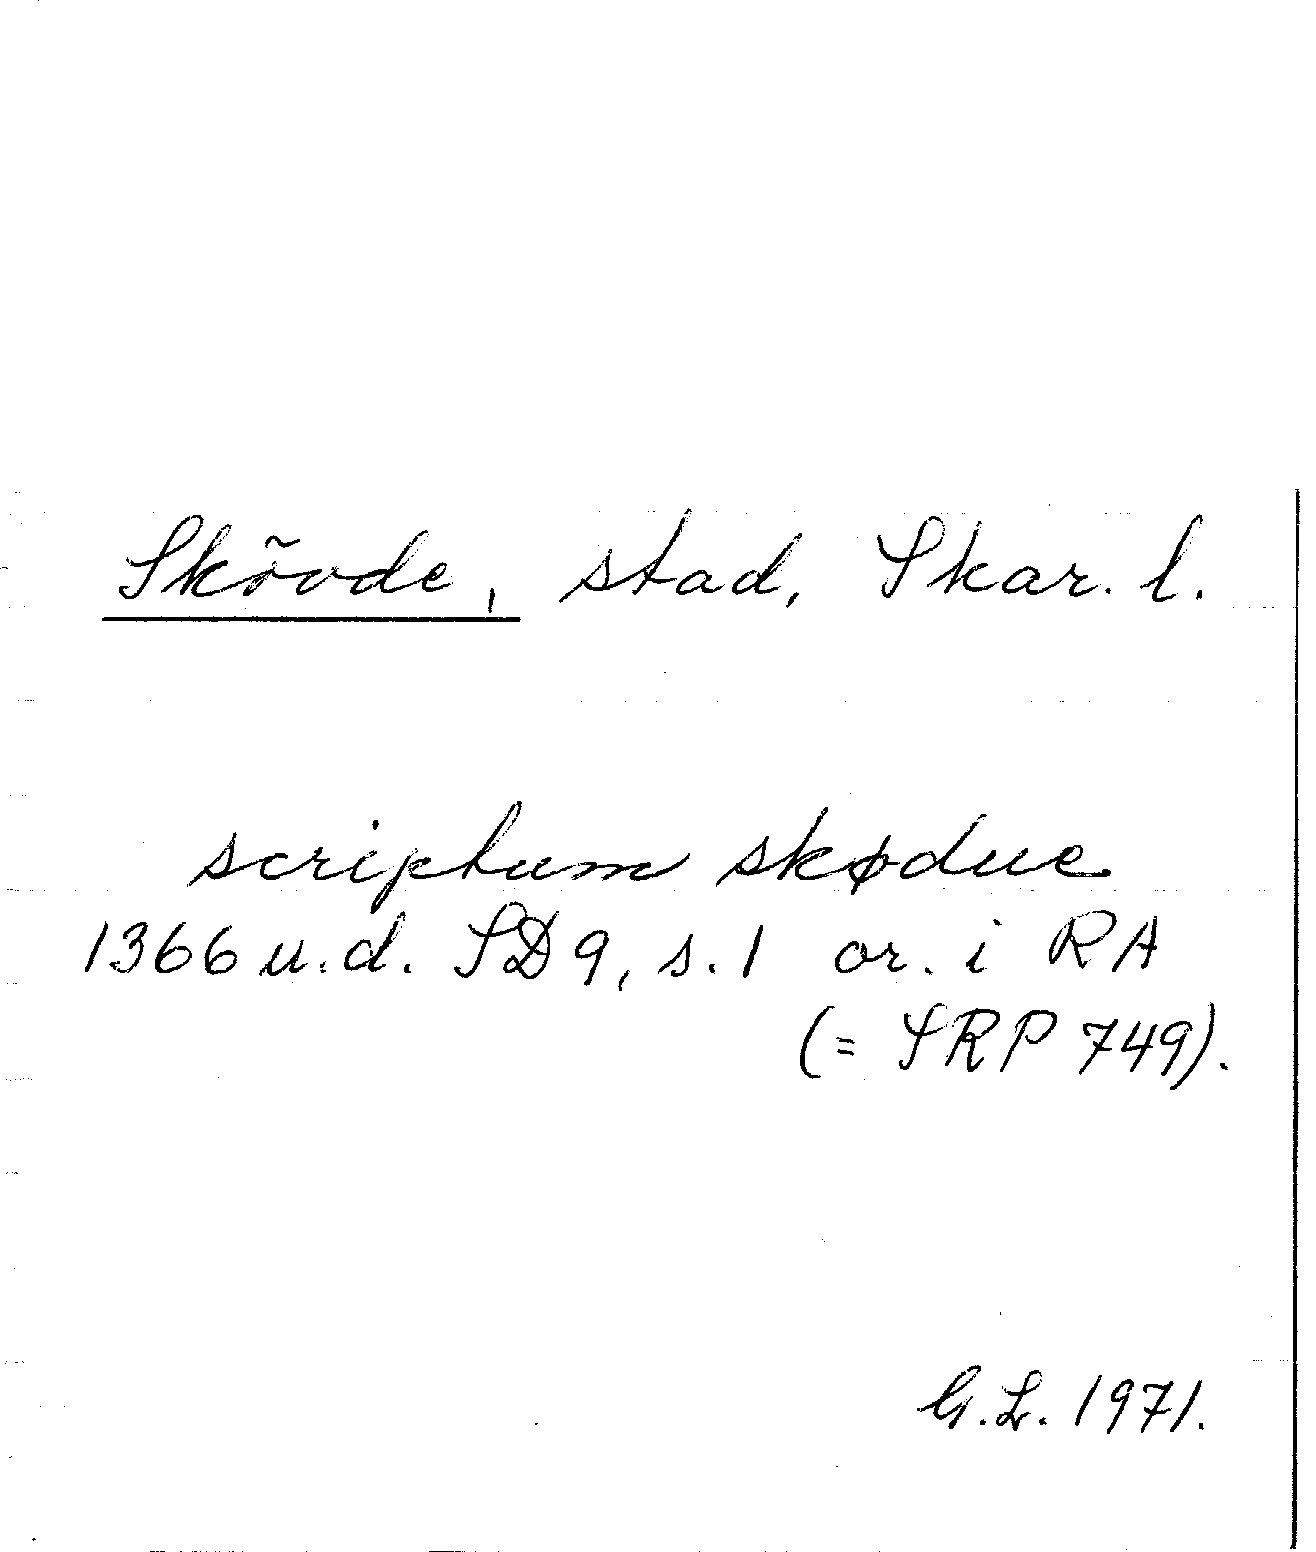 Skövde, stad, Skar. l.
scriptum skødue
1366 u.d. SD 9, s. 1 or. i RA
(= SRP 749).
G.L. 1971.